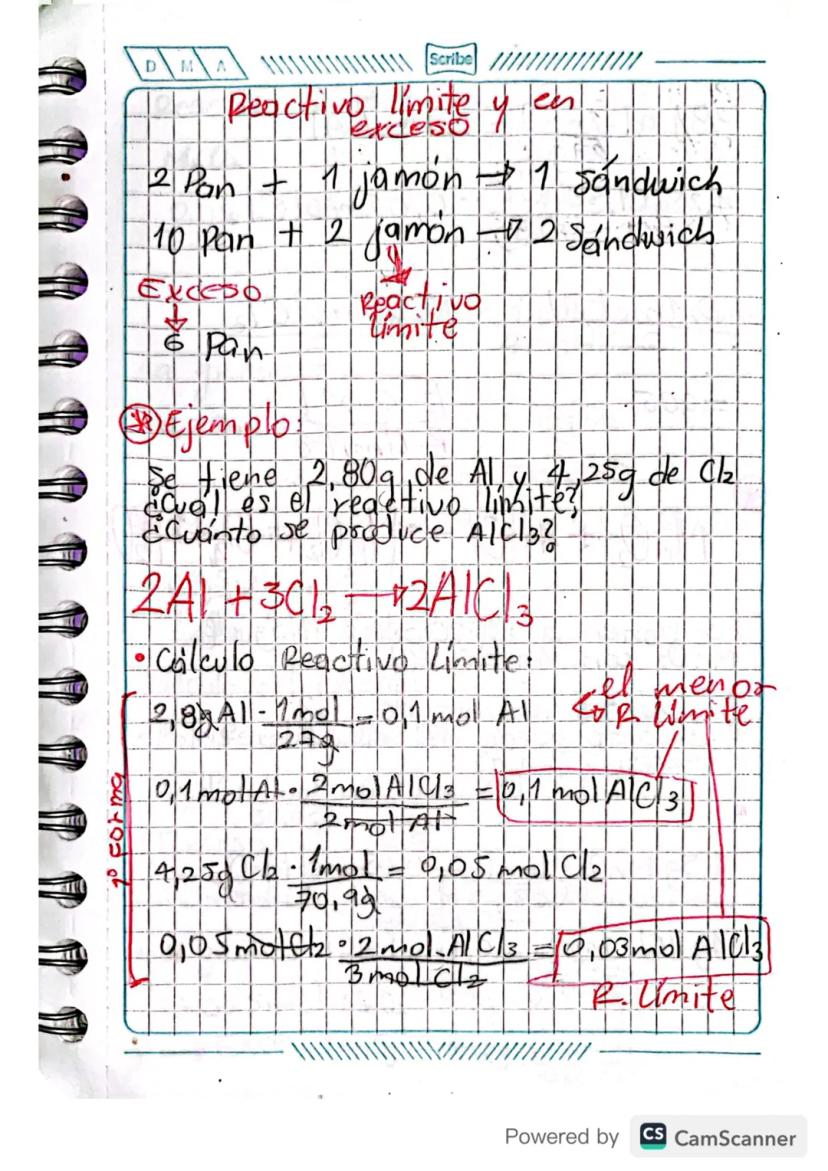 D M A
Scribe
Reactivo límite y en
exceso
2 Pan + 1 jamón → 1 sándwich
10 Pan + 2 jamón → 2 Sándwich
Exceso
↓
6 Pan
Reactivo
límite
* Ejemplo:
Se tiene 2,80g de Al y 4,25g de Cl2
¿Cuál es el reactivo límite?
¿Cuánto se produce AlCl3?
2Al + 3Cl₂ → 2AlCl₃
• Cálculo Reactivo Límite:
el menor
↳ R. límite
2,8g Al · 1mol = 0,1 mol Al
27g
0,1 mol Al · 2mol AlCl3 = 0,1 mol AlCl3
2mol Al
1° forma
4,25g Cl2 · 1mol = 0,05 mol Cl2
70,9g
0,05 mol Cl2 · 2 mol AlCl3 = 0,03 mol AlCl3
3 mol Cl2
R. límite
Powered by CS CamScanner